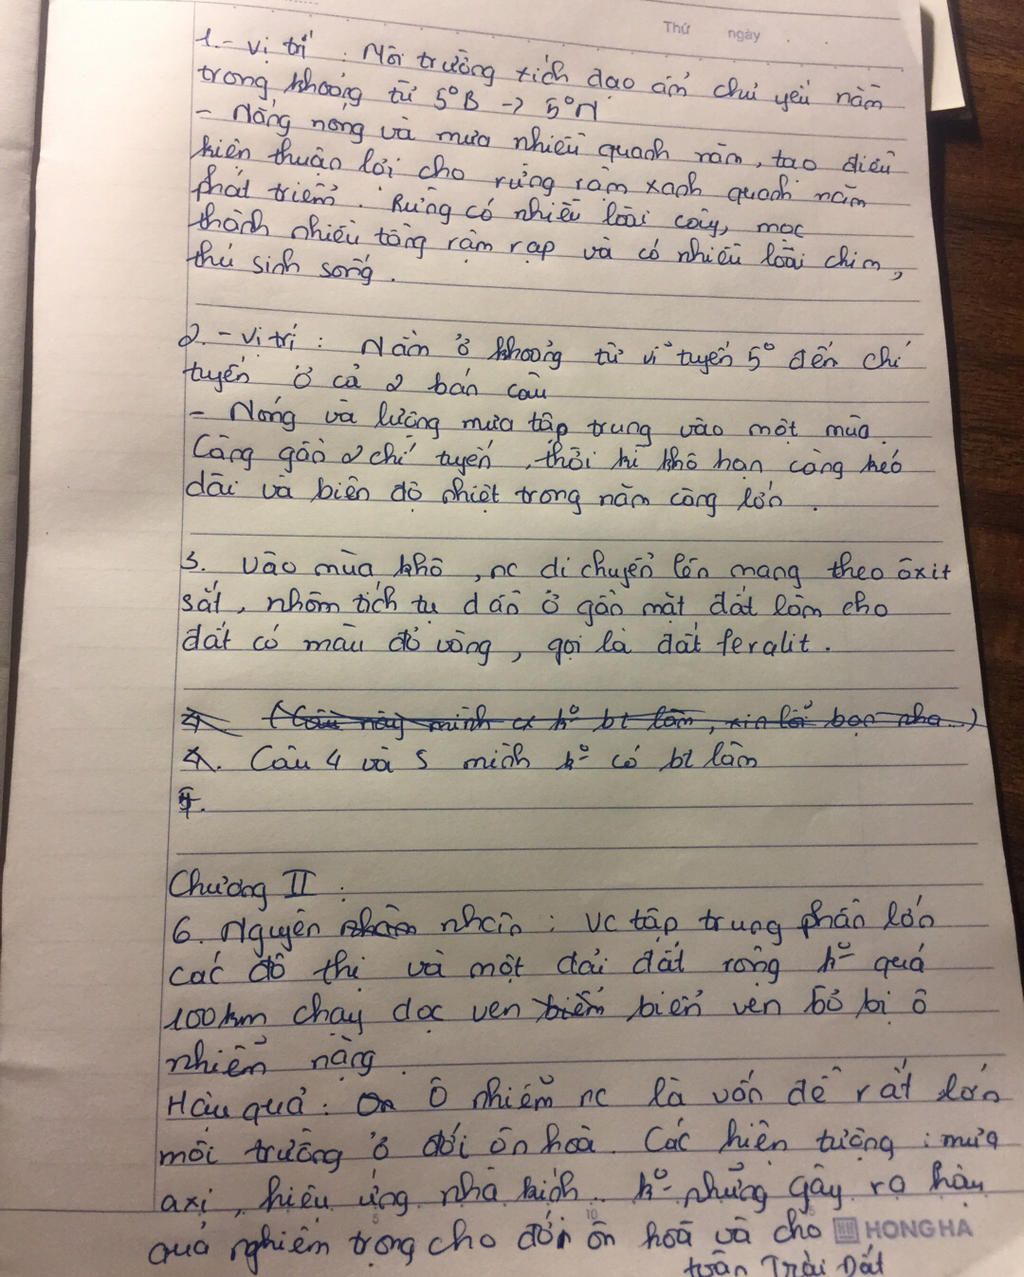 Thứ ngày
1. - vị trí : Môi trường xích đạo ẩm chủ yếu nằm
trong khoảng từ 5°B -> 5°N
- Nắng nóng và mưa nhiều quanh năm, tạo điều
kiện thuận lợi cho rừng rậm xanh quanh năm
phát triển. Rừng có nhiều loài cây, mọc
thành nhiều tầng rậm rạp và có nhiều loài chim,
thú sinh sống.
2. - Vị trí : Nằm ở khoảng từ vĩ tuyến 5° đến chí
tuyến ở cả 2 bán cầu
- Nóng và lượng mưa tập trung vào một mùa.
Càng gần 2 chí tuyến, thời kì khô hạn càng kéo
dài và biên độ nhiệt trong năm càng lớn.
3. Vào mùa khô, nc di chuyển lên mang theo ôxit
sắt, nhôm tích tụ dần ở gần mặt đất làm cho
đất có màu đỏ vàng, gọi là đất feralit.
4. (Câu này mình k° bt làm, xin lỗi bạn nha...)
4. Câu 4 và 5 mình k° có bt làm
5.
Chương II :
6. Nguyên nhân nhân : VC tập trung phần lớn
các đô thị và một dải đất rộng k° quá
100km chạy dọc ven biển biển ven bờ bị ô
nhiễm nặng.
Hậu quả : Ô nhiễm nc là vấn đề rất lớn
môi trường ở đới ôn hoà. Các hiện tượng : mưa
axị, hiệu ứng nhà kính.. k° những gây ra hậu
quả nghiêm trọng cho đới ôn hoà và cho
toàn Trái Đất
HONG HA